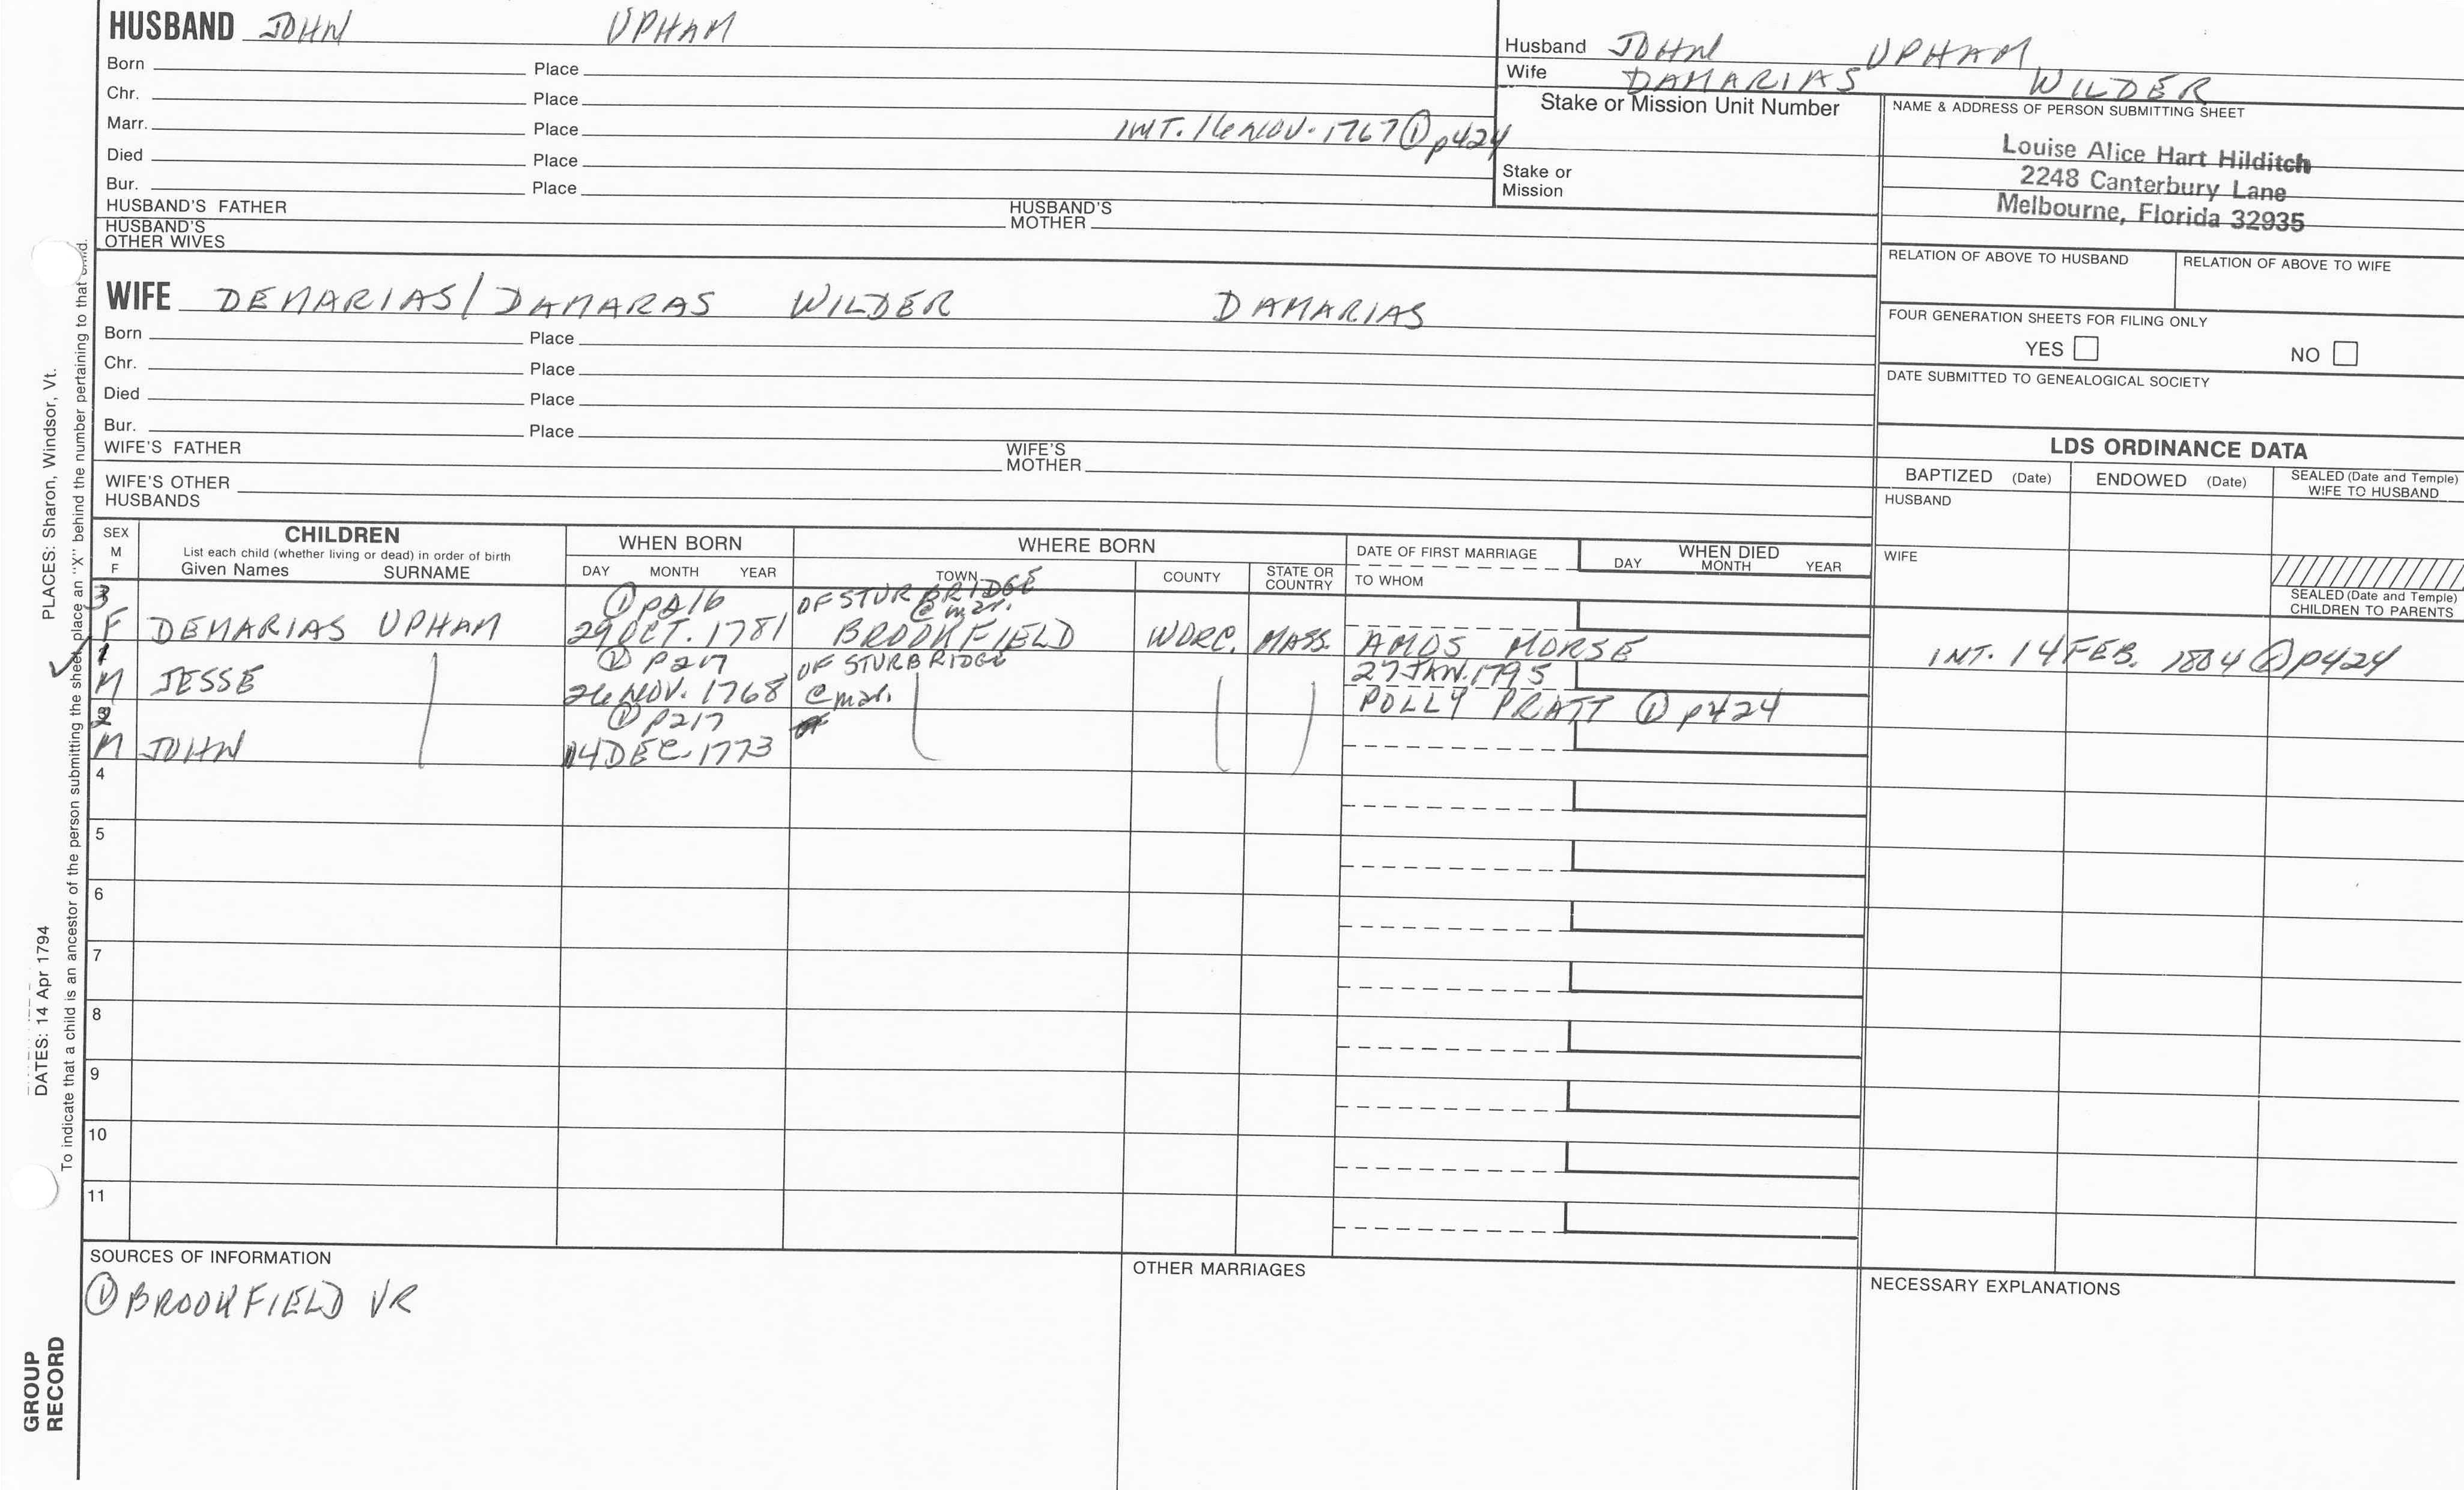 HUSBAND JOHN UPHAM
Born Place
Chr. Place
Marr. Place INT. 16 NOV. 1767 ① p424
Died Place
Bur. Place
HUSBAND'S FATHER HUSBAND'S MOTHER
HUSBAND'S OTHER WIVES
Husband JOHN UPHAM
Wife DAMARIAS WILDER
Stake or Mission Unit Number
Stake or Mission
NAME & ADDRESS OF PERSON SUBMITTING SHEET
Louise Alice Hart Hilditch
2248 Canterbury Lane
Melbourne, Florida 32935
RELATION OF ABOVE TO HUSBAND RELATION OF ABOVE TO WIFE
FOUR GENERATION SHEETS FOR FILING ONLY
YES NO
DATE SUBMITTED TO GENEALOGICAL SOCIETY
WIFE DEMARIAS/DAMARAS WILDER DAMARIAS
Born Place
Chr. Place
Died Place
Bur. Place
WIFE'S FATHER WIFE'S MOTHER
WIFE'S OTHER HUSBANDS
LDS ORDINANCE DATA
BAPTIZED (Date) ENDOWED (Date) SEALED (Date and Temple) WIFE TO HUSBAND
HUSBAND
WIFE
SEALED (Date and Temple) CHILDREN TO PARENTS
SEX M F
CHILDREN
List each child (whether living or dead) in order of birth
Given Names SURNAME
WHEN BORN
DAY MONTH YEAR
WHERE BORN
TOWN COUNTY STATE OR COUNTRY
DATE OF FIRST MARRIAGE
TO WHOM
WHEN DIED
DAY MONTH YEAR
3 ① p216 OF STURBRIDGE @ mar.
F DEMARIAS UPHAM 29 OCT. 1781 BROOKFIELD WORC. MASS. AMOS MORSE INT. 14 FEB. 1804 ① p424
1 ① p217 OF STURBRIDGE 27 JAN. 1795
M JESSE 26 NOV. 1768 @ mar. POLLY PRATT ① p424
2 ① p217
M JOHN 14 DEC. 1773
4
5
6
7
8
9
10
11
SOURCES OF INFORMATION
① BROOKFIELD VR
OTHER MARRIAGES
NECESSARY EXPLANATIONS
PLACES: Sharon, Windsor, Vt.
DATES: 14 Apr 1794
To indicate that a child is an ancestor of the person submitting the sheet, place an "X" behind the number pertaining to that child.
GROUP
RECORD